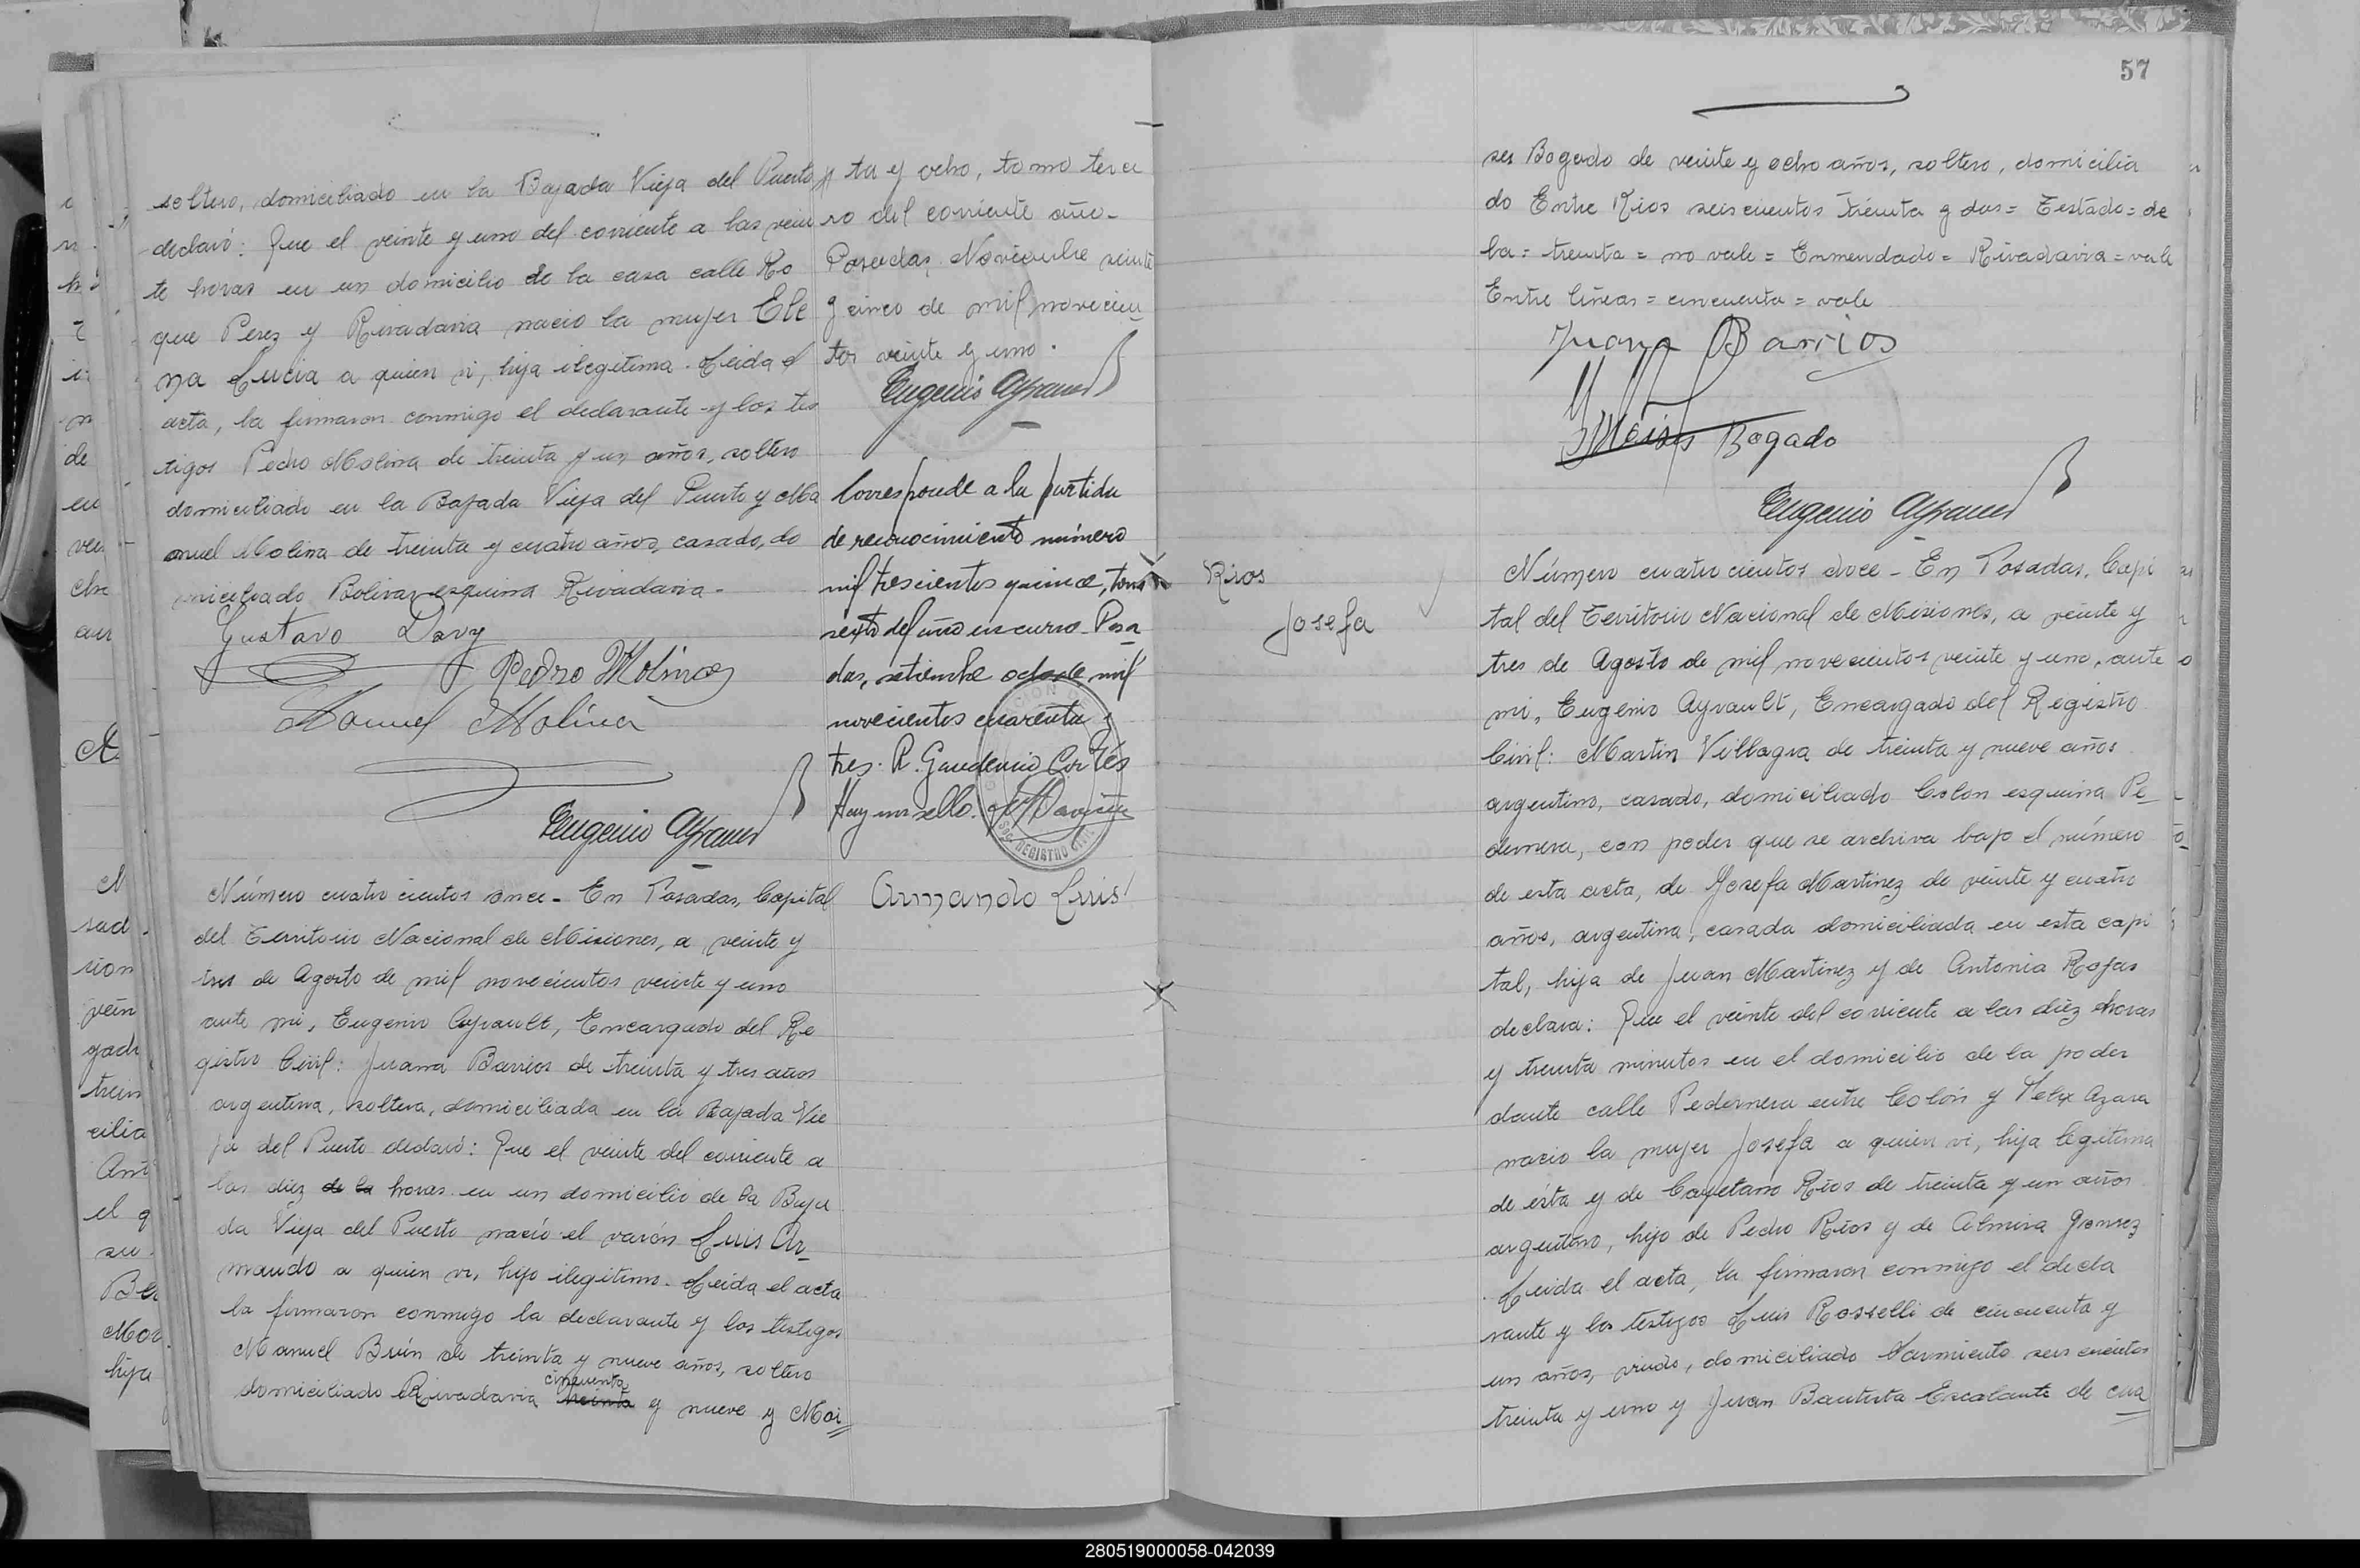 soltero, domiciliado en la Bajada Vieja del Puerto
declaró: Que el veinte y uno del corriente a las vein
te horas en un domicilio de la casa calle Ro
que Perez y Rivadavia nacio la mujer Ele
na Lucia a quien vi, hija ilegitima. Leida el
acta, la firmaron conmigo el declarante y los tes
tigos Pedro Molina de treinta y un años, soltero
domiciliado en la Bajada Vieja del Puerto y Ma
nuel Molina de treinta y cuatro años, casado, do
miciliado Bolivar esquina Rivadavia.-
Gustavo Davy
Pedro Molinas
Manuel Molina
Eugenio Ayrault
Número cuatrocientos once - En Posadas, Capital
del Territorio Nacional de Misiones, a veinte y
tres de Agosto de mil novecientos veinte y uno
ante mi, Eugenio Ayrault, Encargado del Re
gistro Civil: Juana Barrios de treinta y tres años
argentina, soltera, domiciliada en la Bajada Vie
ja del Puerto declaró: Que el veinte del corriente a
las diez de la horas en un domicilio de la Baja
da Vieja del Puerto nació el varón Luis Ar_
mando a quien vi, hijo ilegitimo. Leida el acta
la firmaron conmigo la declarante y los testigos
Manuel Brún de treinta y nueve años, soltero
cincuenta
domiciliado Rivadavia treinta y nueve y Moi
ta y ocho, tomo terce
ro del corriente año.-
Posadas, Noviembre veinte
y cinco de mil novecien
tos veinte y uno.
Eugenio Ayrault
Corresponde a la partida
de reconocimiento número
mil trescientos quince, tomo
sexto del año en curso. Posa
das, setiembre ocho de mil
novecientos cuarenta y
tres. R. Gaudencio Cortés
Hay un sello.
REGISTRO CIVIL
Armando Luis
57
ses Bogado de veinte y ocho años, soltero, domicilia
do Entre Rios seiscientos treinta y dos = Testado = de
la = treinta = no vale = Enmendado = Rivadavia = vale
Entre lineas = cincuenta = vale
Juana Barrios
Moisés Bogado
Eugenio Ayrault
Rios
Josefa
Número cuatrocientos doce - En Posadas, Capi
tal del Territorio Nacional de Misiones, a veinte y
tres de Agosto de mil novecientos veinte y uno, ante
mi, Eugenio Ayrault, Encargado del Registro
Civil: Martin Villagra de treinta y nueve años
argentino, casado, domiciliado Colon esquina Pe_
dernera, con poder que se archiva bajo el número
de esta acta, de Josefa Martinez de veinte y cuatro
años, argentina, casada domiciliada en esta capi
tal, hija de Juan Martinez y de Antonia Rojas
declara: Que el veinte del corriente a las diez horas
y treinta minutos en el domicilio de la poder
dante calle Pedernera entre Colón y Felix Azara
nacio la mujer Josefa a quien vi, hija legitima
de ésta y de Cayetano Rios de treinta y un años
argentino, hijo de Pedro Rios y de Almira Gomez
Leida el acta, la firmaron conmigo el decla
rante y los testigos Luis Rosselli de cincuenta y
un años, viudo, domiciliado Sarmiento seis cientos
treinta y uno y Juan Bautista Escalante de cua
280519000058-042039